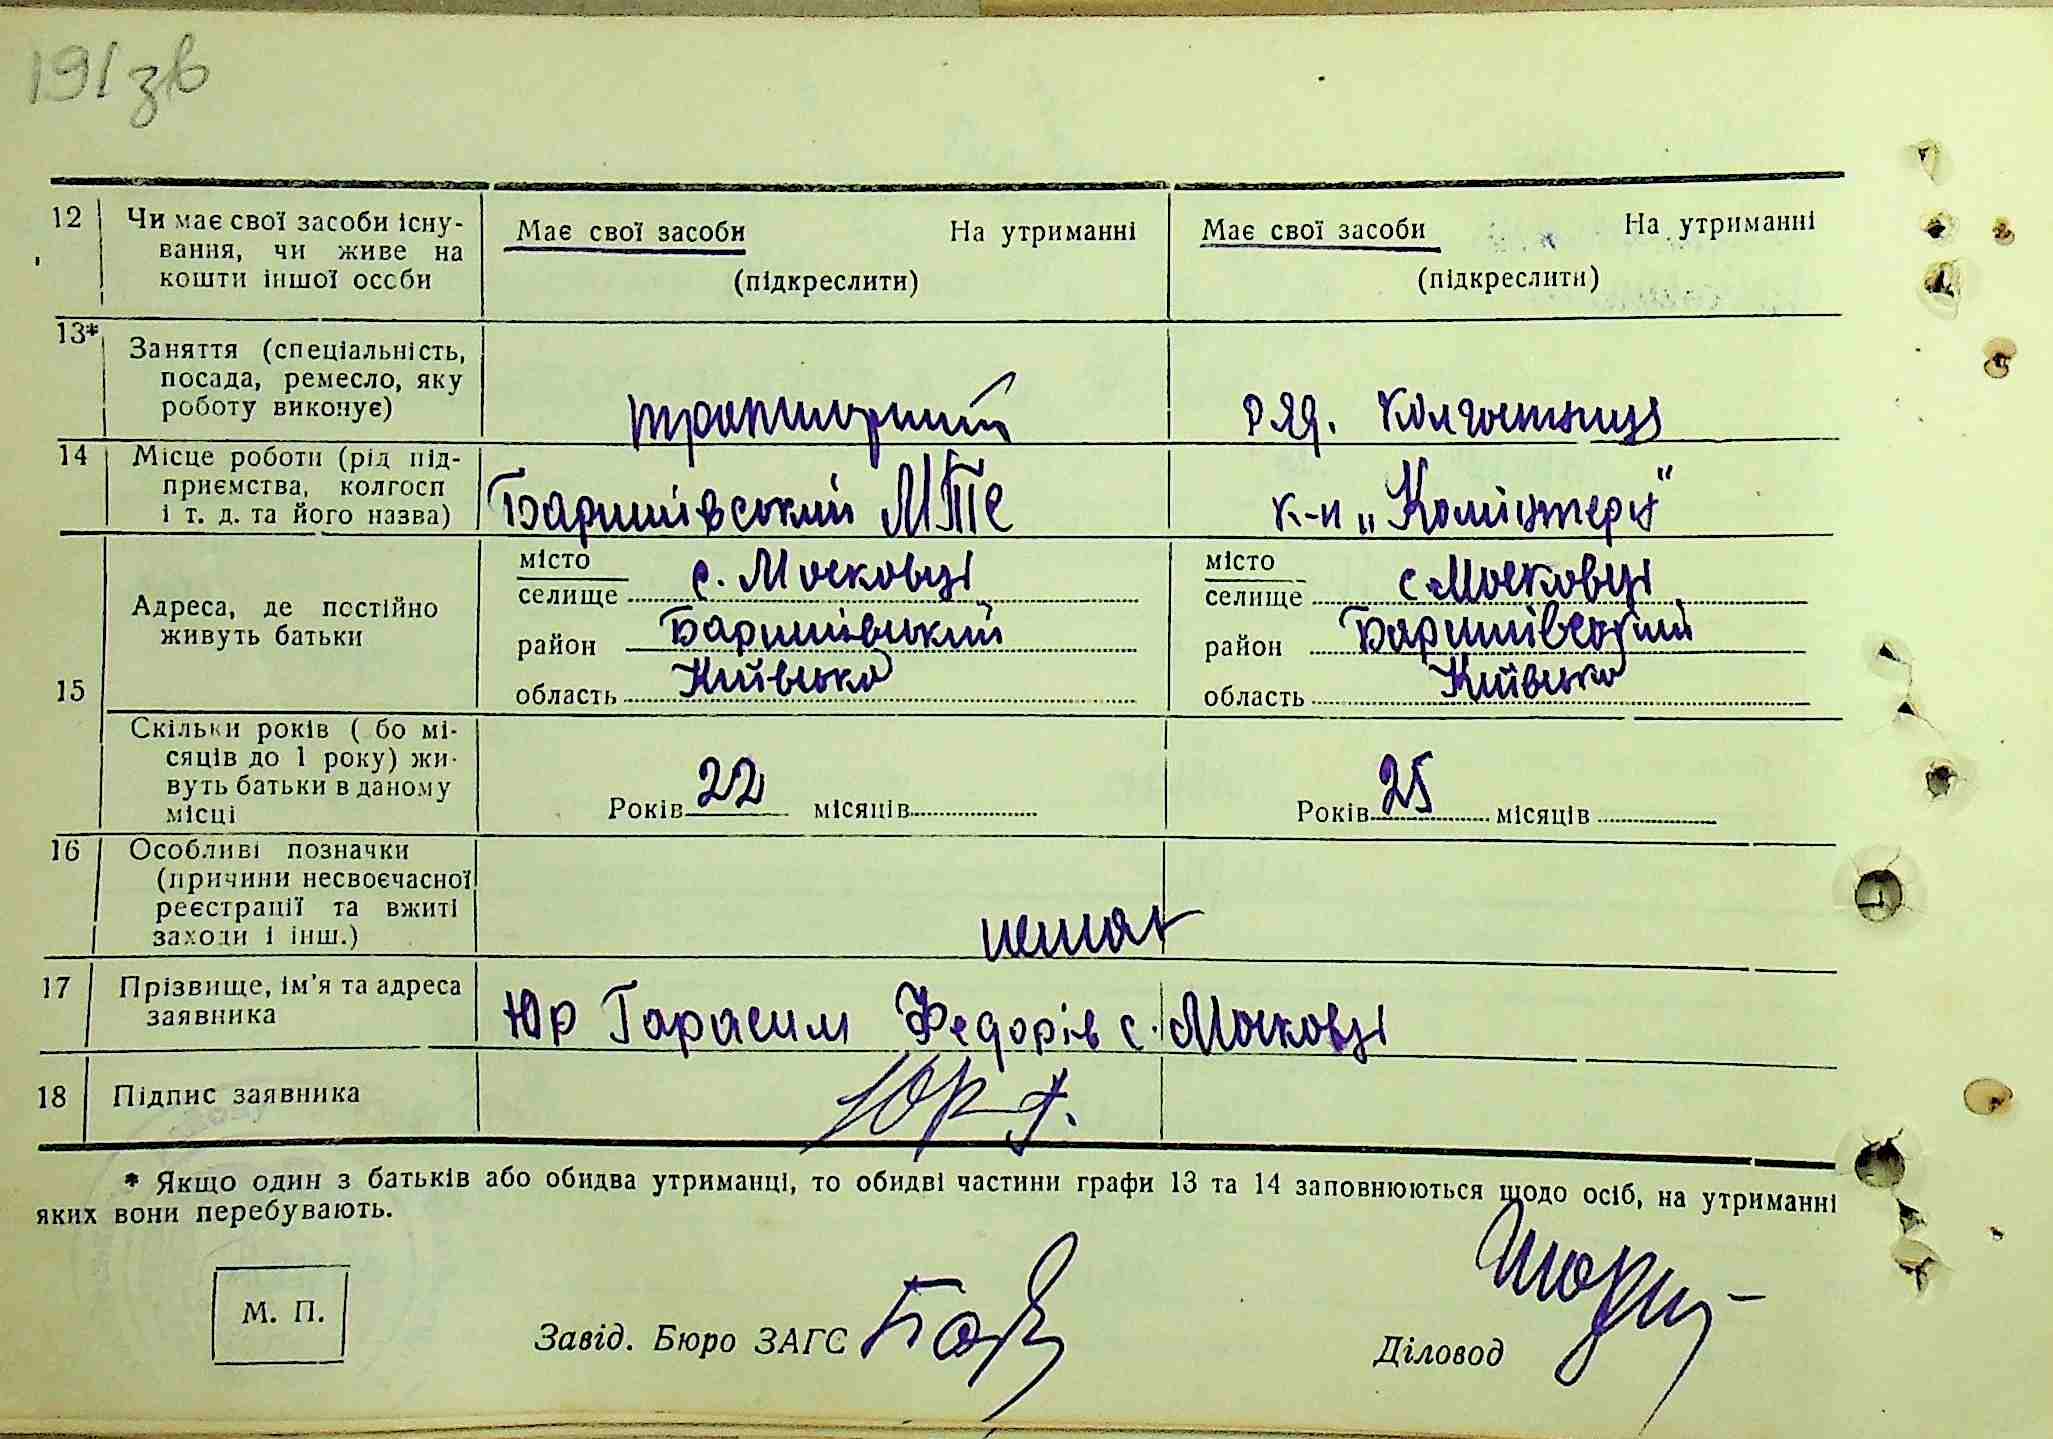 191зв
12 Чи має свої засоби існу-
вання, чи живе на
кошти іншої особи
Має свої засоби На утриманні
(підкреслити)
Має свої засоби На утриманні
(підкреслити)
13* Заняття (спеціальність,
посада, ремесло, яку
роботу виконує)
ряд. колгоспниця
14 Місце роботи (рід під-
приємства, колгосп
і т. д. та його назва)
Баришівський МТС
к-п „Комінтерн"
15 Адреса, де постійно
живуть батьки
місто
селище с. Московці
район Баришівський
область Київська
місто
селище с Московці
район Баришівський
область Київська
Скільки років ( бо мі-
сяців до 1 року) жи-
вуть батьки в даному
місці
Років 22 місяців
Років 25 місяців
16 Особливі позначки
(причини несвоєчасної
реєстрації та вжиті
заходи і інш.)
немає
17 Прізвище, ім'я та адреса
заявника
Юр Гарасим Федорів с. Московці
18 Підпис заявника
Юр
* Якщо один з батьків або обидва утриманці, то обидві частини графи 13 та 14 заповнюються щодо осіб, на утриманні
яких вони перебувають.
М. П.
Завід. Бюро ЗАГС
Діловод